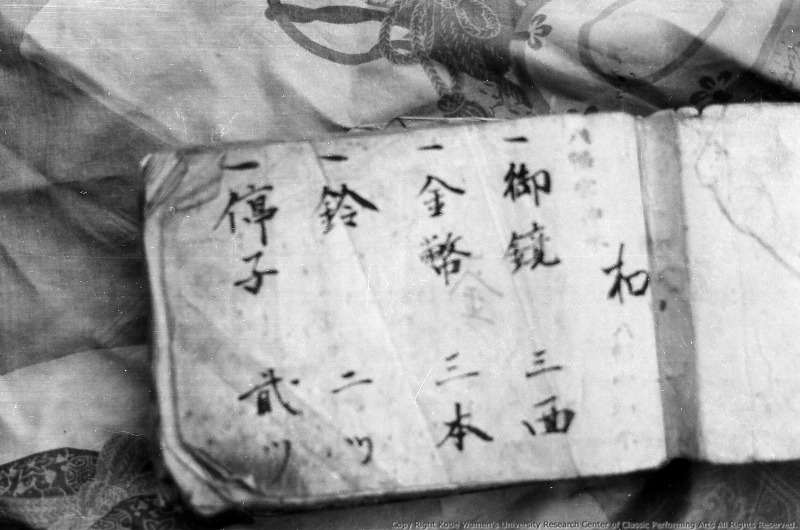 和
一 御鏡 三西
一 金幣 三本
一 鈴 二ツ
一 停子 貳ツ
金
Copy Right Kobe Women's University Research Center of Classic Performing Arts All Rights Reserved.